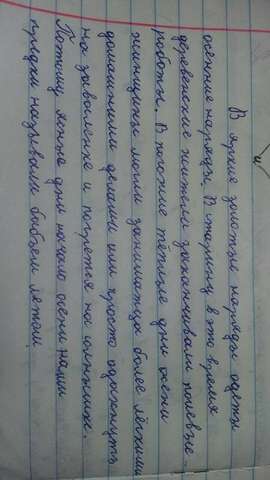 и
В яркие золотые наряды одеты
осенние наряды. В старину в это время
деревенские жители заканчивали полевые
работы. В погожие тёплые дни осени
женщины могли заниматься более лёгкими
домашними делами или просто отдохнуть
на заваленке и погреться на солнышке.
Потому ясные дни начало осени наши
предки называли бабьем летом.